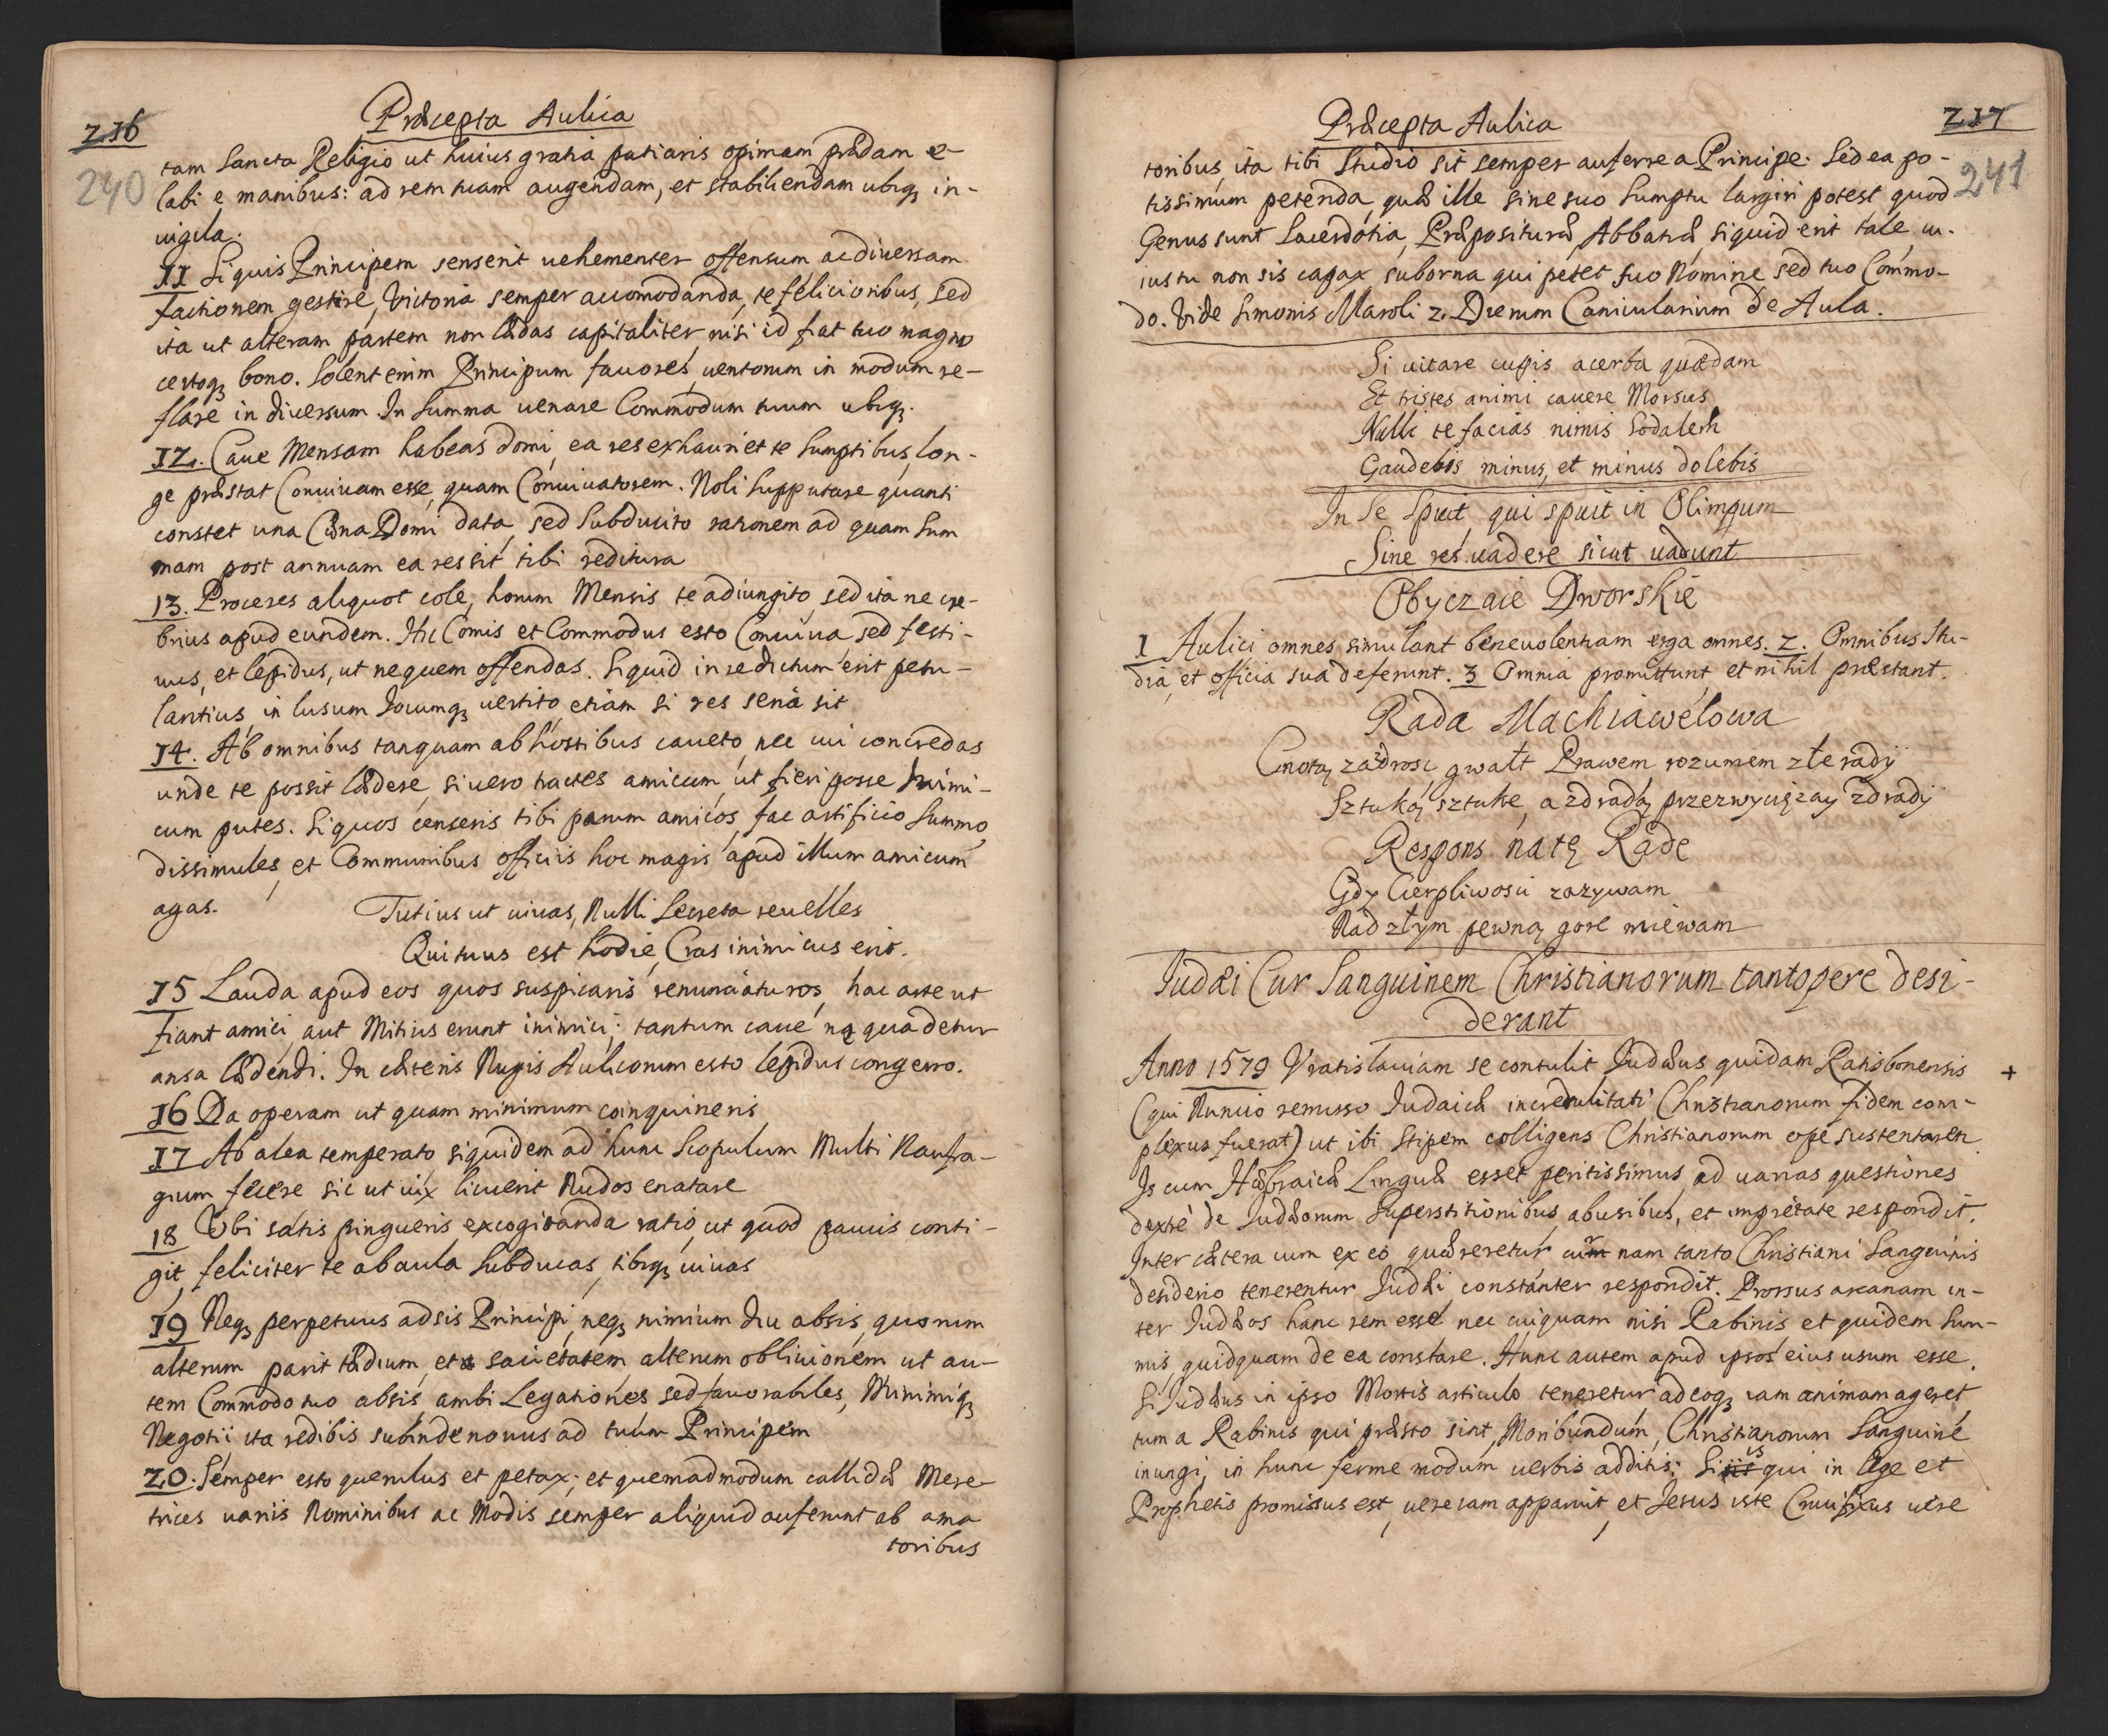 236
240
Præcepta Aulica
tam Sancta Religio ut huius gratia patiaris opimam prædam e-
labi e manibus: ad rem tuam augendam, et stabiliendam ubiqʒ in-
uigila.
11 Siquis Principem senserit uehementer offensum ac diuersam
factionem gestire, Victoria semper accomodanda, te felicioribus, sed
ita ut alteram partem non lædas capitaliter nisi id fiat tuo magno
certoqʒ bono. Solent enim Principum fauores uentorum in modum re-
flare in diuersum. In Summa uenare Commodum tuum ubiqʒ.
12. Caue Mensam habeas domi, ea res exhauriet te Sumptibus, lon-
ge præstat Conuiuam esse, quam Conuiuatorem. Noli Supputare quanti
constet una Cœna Domi data, sed Subducito rationem ad quam Sum
mam post annuam ea res sit tibi reditura
13. Proceres aliquot cole, horum Mensis te adiungito, sed ita ne cre-
brius apud eundem. Hic Comis et Commodus esto Conuiua sed festi-
uus, et lepidus, ut nequem offendas. Siquid in te dictum erit petu-
lantius, in lusum Iocumqʒ uertito, etiam si res seria sit
14. Ab omnibus tanquam ab hostibus caueto, nec cui concredas
unde te possit lædere, si uero tractes amicum, ut fieri posse Inimi-
cum putes. Siquos censeris tibi parum amicos, fac artificio Summo
dissimules, et Communibus officiis hoc magis apud illum amicum
agas.
Tutius ut uiuas, Nulli Secreta reuelles
Qui tuus est hodie, Cras inimicus erit.
15 Lauda apud eos quos suspicaris renunciaturos, hac arte ut
fiant amici, aut Mitius erunt inimici; tantum caue ne qua detur
ansa lædendi. In cæteris Nugis Aulicorum esto lepidus congerro.
16 Da operam ut quam minimum coinquineris
17 Ab alea temperato siquidem ad hunc Scopulum Multi Naufra-
gium fecere sic ut uix licuerit Nudos enatare
18 Ubi satis pingueris, excogitanda ratio, ut quod paucis conti-
git, feliciter te ab aula Subducas, tibiqʒ uiuas
19 Neqʒ perpetuus adsis Principi, neqʒ nimium diu absis, quorum
alterum parit tædium, et sacietatem alterum obliuionem ut au-
tem Commodo tuo absis, ambi Legationes sed fauorabiles, Minimiqʒ
Negotii, ita redibis subinde nouus ad tuum Principem
20. Semper esto querulus et petax; et quemadmodum callidæ Mere-
trices uariis Nominibus ac Modis semper aliquid auferunt ab ama
toribus
Præcepta Aulica
237
241
toribus, ita tibi Studio sit semper auferre a Principe. Sed ea po-
tissimum petenda, quæ ille sine suo Sumptu largiri potest quod
Genus sunt Sacerdotia, Præposituræ, Abbatiæ, siquid erit tale, cu-
ius tu non sis capax, suborna qui petet suo Nomine sed tuo Commo-
do. Vide Simonis Maroli 2. Dierum Canicularium de Aula.
Si uitare cupis acerba quædam
Et tristes animi cauere Morsus
Nulli te facias nimis Sodalem
Gaudebis minus, et minus dolebis
In Se Spuit, qui spuit in Olimpum
Sine res uadere sicut uadunt
Obyczaie Dworskie
1 Aulici omnes simulant beneuolentiam erga omnes. 2. Omnibus Stu-
dia, et officia sua deferunt. 3 Omnia promittunt et nihil præstant.
Rada Machiawelowa
Cnotą zazdrosc, gwałt Prawem rozumem złe rady
Sztuką sztukę, a zdradą przezwyciężay zdrady
Respons na tę Radę
Gdy Cierpliwosci zazywam
Nad złym pewną gorę miewam
Iudæi Cur Sanguinem Christianorum tantopere desi-
derant
Anno 1579 Vratislauiam se contulit Iudæus quidam Ratisbonensis +
(qui Nuncio remisso Iudaicæ incredulitati Christianorum fidem com-
plexus fuerat) ut ibi stipem colligens Christianorum ope sustentaretur
Is cum Hæbraicæ Linguæ esset peritissimus, ad uarias questiones
dextre de Iudæorum Superstitionibus, abusibus, et impietate respondit.
Inter cætera cum ex eo quæreretur cur nam tanto Christiani Sanguinis
desiderio tenerentur Iudæi constanter respondit. Prorsus arcanam in-
ter Iudæos hanc rem esse nec cuiquam nisi Rabinis et quidem Sum-
mis, quidquam de ea constare. Hunc autem apud ipsos eius usum esse.
Si Iudæus in ipso Mortis articulo teneretur adeoqʒ iam animam ageret,
tum a Rabinis qui præsto sint, Moribundum, Christianorum Sanguine
inungi, in hunc ferme modum uerbis additis: Si is qui in lege et
Prophetis promissus est, uere iam apparuit, et Iesus iste Crucifixus uere